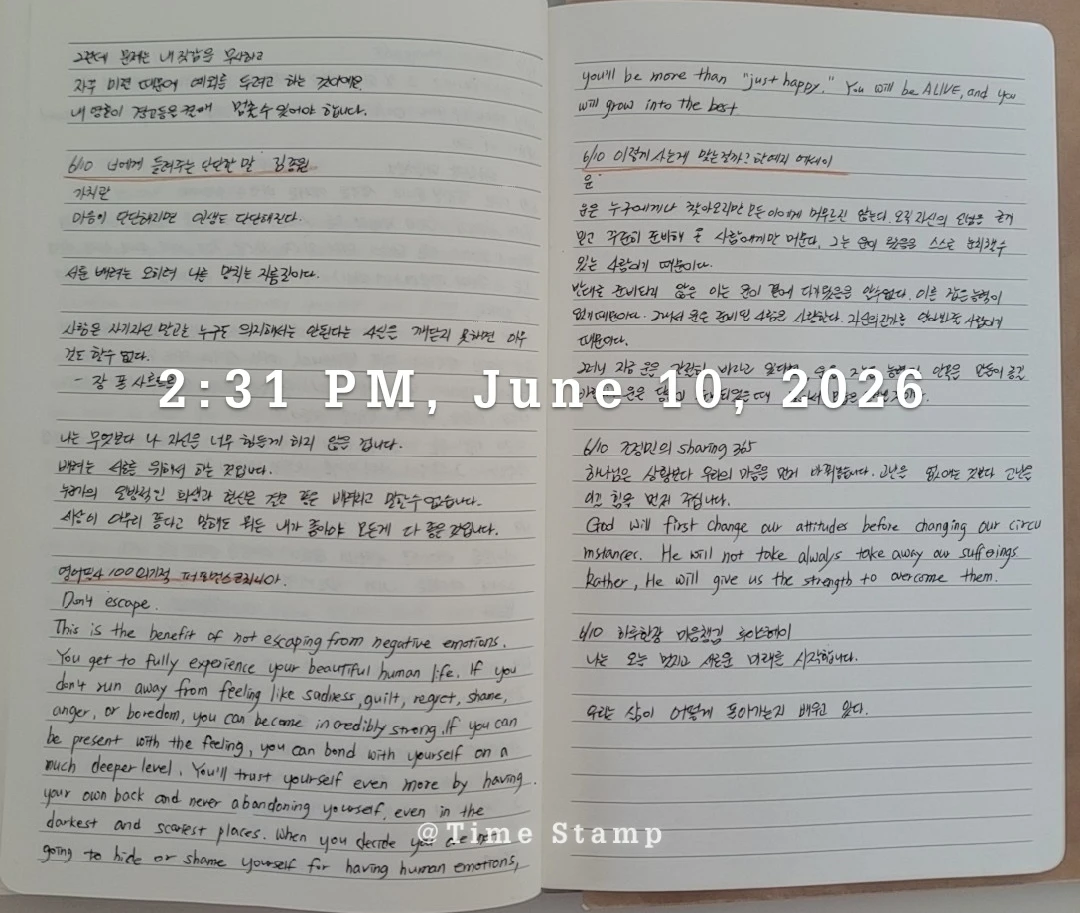 그런데 문제는 내 직감을 무시하고
자꾸 미련 때문에 예외를 두려고 하는 것이에요
내 영혼이 경고등을 켤 때 멈출 수 있어야 합니다.
6/10 너에게 들려주는 단단한 말 김종원
가치관
마음이 단단해지면 인생도 단단해진다.
서툰 배려는 오히려 나를 망치는 지름길이다.
사람은 자기자신 말고는 누구도 의지해서는 안된다는 사실을 깨닫지 못하면 아무
것도 할수 없다.
- 장 폴 사르트르
나는 무엇보다 나 자신을 너무 힘들게 하지 않을 겁니다.
배려는 서로를 위해서 하는 것입니다.
누군가의 일방적인 희생과 헌신은 결코 좋은 배려라고 말할 수 없습니다.
세상이 아무리 좋다고 말해도 뭐든 내가 좋아야 모든게 다 좋은 것입니다.
영어필사 100일의 기적 퍼포먼스코리니아.
Don't escape.
This is the benefit of not escaping from negative emotions.
You get to fully experience your beautiful human life. If you
don't run away from feeling like sadness, guilt, regret, shame,
anger, or boredom, you can become incredibly strong. If you can
be present with the feeling, you can bond with yourself on a
much deeper level. You'll trust yourself even more by having
your own back and never abandoning yourself, even in the
darkest and scariest places. When you decide you are not
going to hide or shame yourself for having human emotions,
you'll be more than "just happy." You will be ALIVE, and you
will grow into the best
6/10 이렇게 사는게 맞는걸까? 탄예지 에세이
운
운은 누구에게나 찾아오지만 모든 이에게 머무르진 않는다. 오직 자신의 신념을 굳게
믿고 꾸준히 준비해 온 사람에게만 머문다. 그는 운이 왔음을 스스로 눈치챌 수
있는 사람이기 때문이다.
반대로 준비되지 않은 이는 운이 곁에 다가왔음을 알 수 없다. 이를 잡을 능력이
없기 때문이다. 그래서 운은 준비된 사람을 사랑한다. 자신의 가치를 알아봐줄 사람이기
때문이다.
그러니 지금 운을 간절히 바라고 있다면
6/10 조정민의 sharing 365
하나님은 상황보다 우리의 마음을 먼저 바꿔놓습니다. 고난을 없애는 것보다 고난을
이길 힘을 먼저 주십니다.
God will first change our attitudes before changing our circu
mstances. He will not take always take away our sufferings
Rather, He will give us the strength to overcome them.
6/10 하루한장 마음챙김 루이스헤이
나는 오늘 멋지고 새로운 미래를 시작합니다.
우리는 삶이 어떻게 돌아가는지 배우고 있다.
2:31 PM, June 10, 2026
@Time Stamp